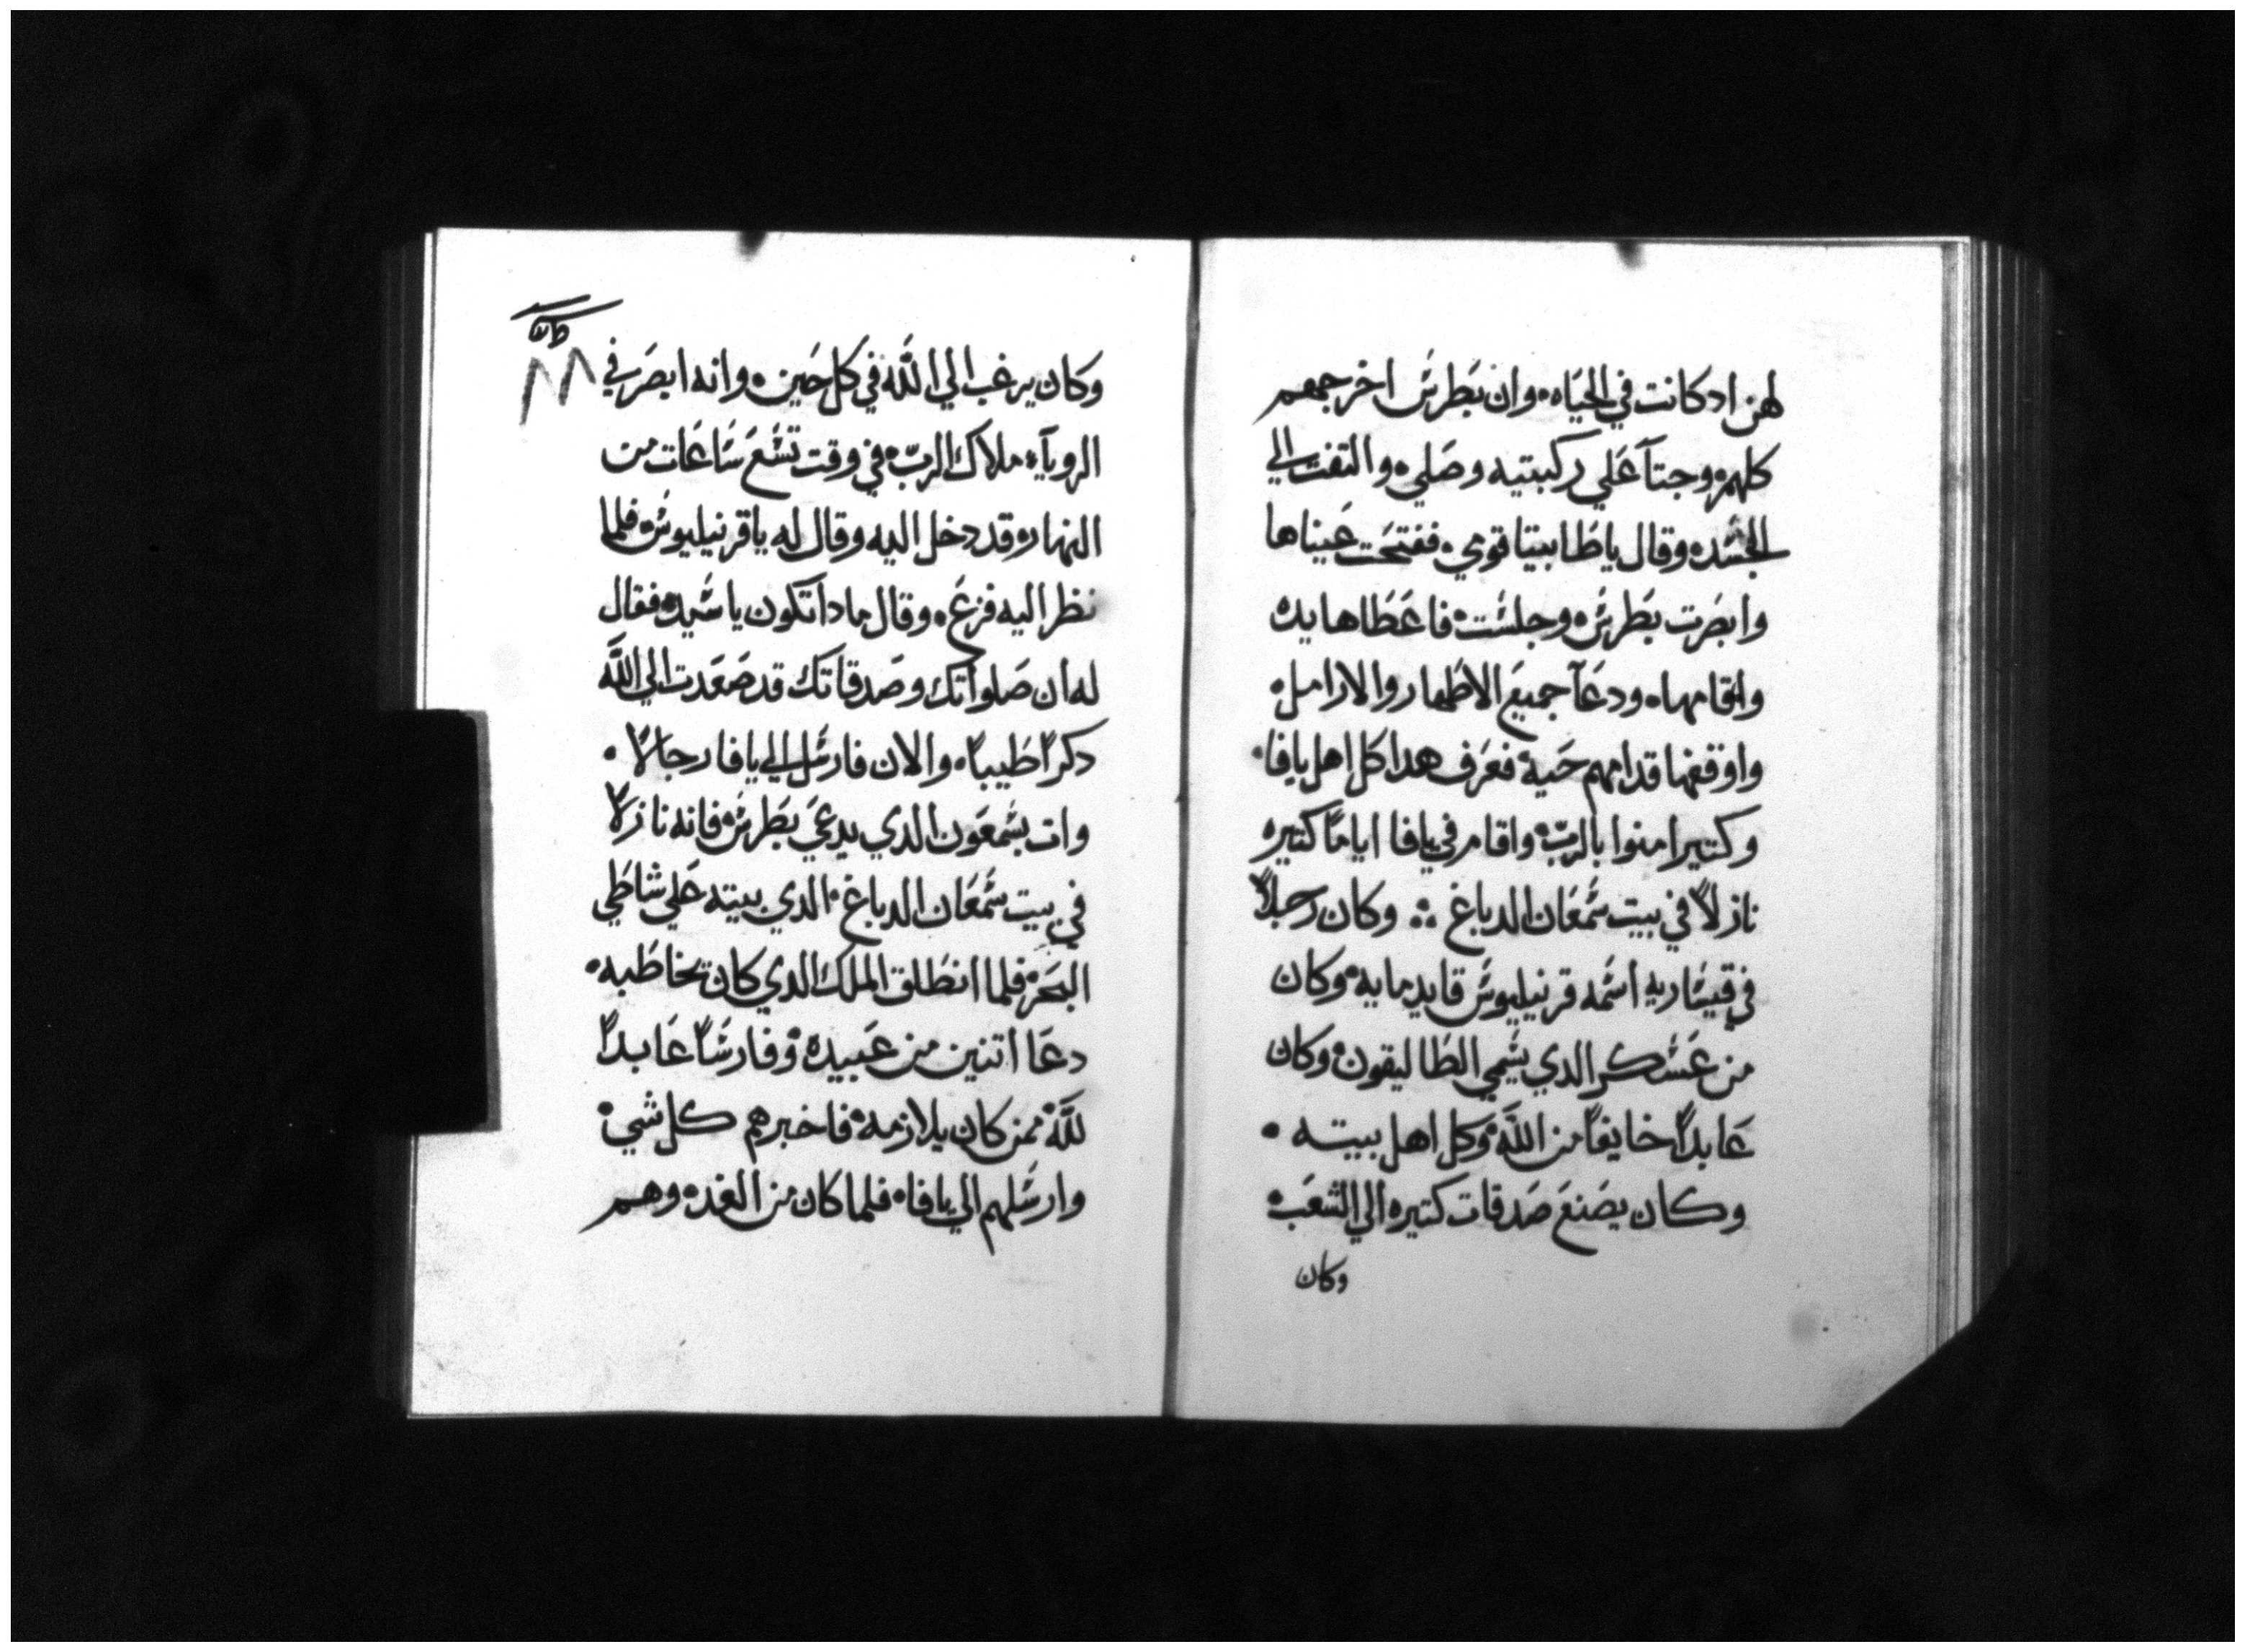 لهن ادكانت في الحياه ٠ وان بطرس اخرجهم
كلهم ٠ وجتا علي ركبتيه وصلي ٠ والتفت الي
الجسد ٠ وقال ياطابيتا قومي ٠ ففتحت عيناها
وابصرت بطرس ٠ وجلست ٠ فاعطاها يده
واقامها ٠ ودعا جميع الاطهار والارامل ٠
واوقفها قدامهم حية ٠ فعرف هدا كل اهل يافا ٠
وكتيرا منوا بالرب ٠ واقام في يافا اياما كتيره
نازلاً في بيت سمعان الدباغ ❖ وكان رجلاً
في قيساريه اسمه قرنيليوس قايد مايه ٠ وكان
من عسكر الدي يسمي الطاليقون ٠ وكان
عابداً خايفاً من الله ٠ وكل اهل بيته ٠
وكان يصنع صدقات كتيره الي الشعب ٠
وكان
وكان يرغب الي الله في كل حين ٠ وانه ابصر في
الروياء ملاك الرب ٠ في وقت تسع ساعات من
النهار ٠ وقد دخل اليه وقال له ياقرنيليوس ٠ فلما
نظر اليه فزع ٠ وقال مادا تكون ياسيد ٠ فقال
له ان صلواتك وصدقاتك قد صعدت الي الله
دكراً طيباً ٠ والان فارسل الي يافا رجالاً ٠
وات بشمعون الدي يدعي بطرس ٠ فانه نازلاً
في بيت سمعان الدباغ ٠ الدي بيته علي شاطي
البحر ٠ فلما انطلق الملك الدي كان يخاطبه ٠
دعا اتنين من عبيده ٠ وفارساً عابداً
لله ٠ ممن كان يلازمه ٠ فاخبرهم كل شي ٠
وارسلهم الي يافا ٠ فلما كان من الغد ٠ وهم